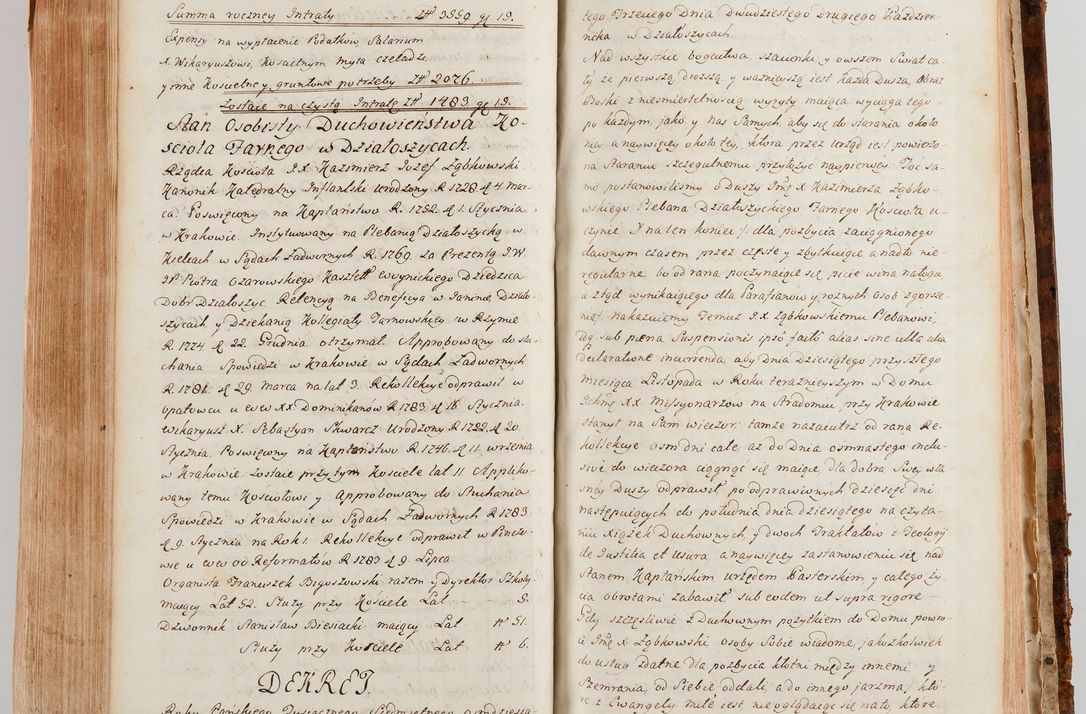 Summa roczney Intraty Zł 3559 gr 19.
Expensy na wypłacenie Podatków Salarium
X. Wikaryuszowi, Koscielnym myta czeladzi,
y inne Koscielney, gruntowe potrzeby Zł 2076.
Zostaie na czystą Intratę Zł 1483 gr 19.
Stan Osobisty Duchowieństwa Ko-
scioła Farnego w Działoszycach.
Rządca Kościoła J.X. Kazimierz Jozef Ząbkowski
Kanonik Katedralny Inflantski urodzony R. 1728. d. 4. mar-
ca. Poswięcony na Kapłaństwo R. 1752. d. 1. Stycznia
w Krakowie. Instytuowany na Plebanią Działoszycką w
Kielcach w Sądach Zadwornych R. 1769. za Prezentą J.W.
JP. Piotra Ożarowskiego Kasztell. woynickiego Dziedzica
Dobr Działoszyc. Retencyą na Beneficya w Janinie, Działo-
szycach y Dziekanią Kollegiaty Tarnowskiey w Rzymie
R. 1774. d. 22. Grudnia otrzymał. Approbowany do słu-
chania Spowiedzi w Krakowie w Sądach Zadwornych
R. 1781. d. 29. Marca na lat 3. Rekollekcye odprawił w
Opatowcu u WW XX. Dominikanów R. 1783. d. 18. Stycznia.
Wikaryusz X. Sebastyan Skwarcz Urodzony R. 1722. d. 20
Stycznia. Poswięcony na Kapłaństwo R. 1746. d. 11. wrzesnia
w Krakowie. Zostaie przy tym Kosciele lat 11. Appliko-
wany temu Kościołowi y Approbowany do Słuchania
Spowiedzi w Krakowie w Sądach Zadwornych R. 1783
d. 9. Stycznia na Rok 1. Rekollekcye odprawił w Pinczo-
wie u WW OO. Reformatów R. 1783. d. 9. Lipca
Organista Franciszek Bigoszowski razem y Dyrektor Szkoły
maiący Lat 52. Służy przy Kościele Lat — 5.
Dzwonnik Stanisław Biesiacki maiący Lat 51.
Służy przy Kosciele Lat 6.
DEKRET.
Roku Pańskiego Tysiącznego Siedmsetnego
tego Trzeciego Dnia Dwudziestego Drugiego Paździer-
nika w Działoszycach.
Nad wszystkie bogactwa, szacunki, y owszem Swiat ca-
ły, że pierwszą, drozszą, y ważnieyszą iest każda Dusza, Obraz
Boski z niesmiertelnoscią wyryty maiąca wyciąga tego
po każdym, jako y nas Samych, aby się do starania około
niey, a naywięcey około tey, ktora przez urząd iest powierzo-
na Staraniu szczegulnemu przyłożyć naypierwey. Toż sa-
mo postanowilismy o Duszy Jmę X. Kazimierza Ząbko-
wskiego Plebana Działoszyckiego Farnego Kościoła u-
czynić. Y na ten koniec /: dla pozbycia zaciągnionego
dawnym czasem przez częste y zbytkuiące a nadto nie-
regularne, bo od rana poczynaiące się picie wina nałogu
a ztąd wynikaiącego dla Parafianów y roznych Osob zgorsze-
nia /: nakazuiemy Temuż J.X. Ząbkowskiemu Plebanowi,
idq sub pœna Suspensionis ipso facto alias sine ulla alia
Declaratione incurrenda aby Dnia Dziesiątego przyszłego
Miesiąca Listopada w Roku teraznieyszym w Domu
Ichmę XX Missyonarzów na Stradomiu przy Krakowie
stanął na Sam wieczor; tamże nazaiutrz od rana Re-
kollekcye osm dni całe, aż do Dnia osmnastego inclu-
sive do wieczora ciągnąć się maiące, dla dobra Swey wła-
sney Duszy odprawił, po odprawionych dziesięć dni
następuiących do południa dnia dziesiątego na czyta-
niu Xiążek Duchownych, y dwoch Traktatów z Teologij
de Justitia et Usura, a naywięcey zastanowieniu się nad
Stanem Kapłańskim urzędem Pasterskim y całego ży-
cia obrotami zabawił sub eodem ut supra rigore —
Gdy szczęśliwie z Duchownym pożytkiem do Domu powro-
ci Jmę X. Ząbkowski, osoby Sobie wiadome, jakożkolwiek
do usług zdatne, dla pozbycia kłotni między innemi y
Szemrania, od Siebie oddali, a do innego jarzma, któ-
re z Ewangelij miłe iest nieoglądaiąc się na to, które